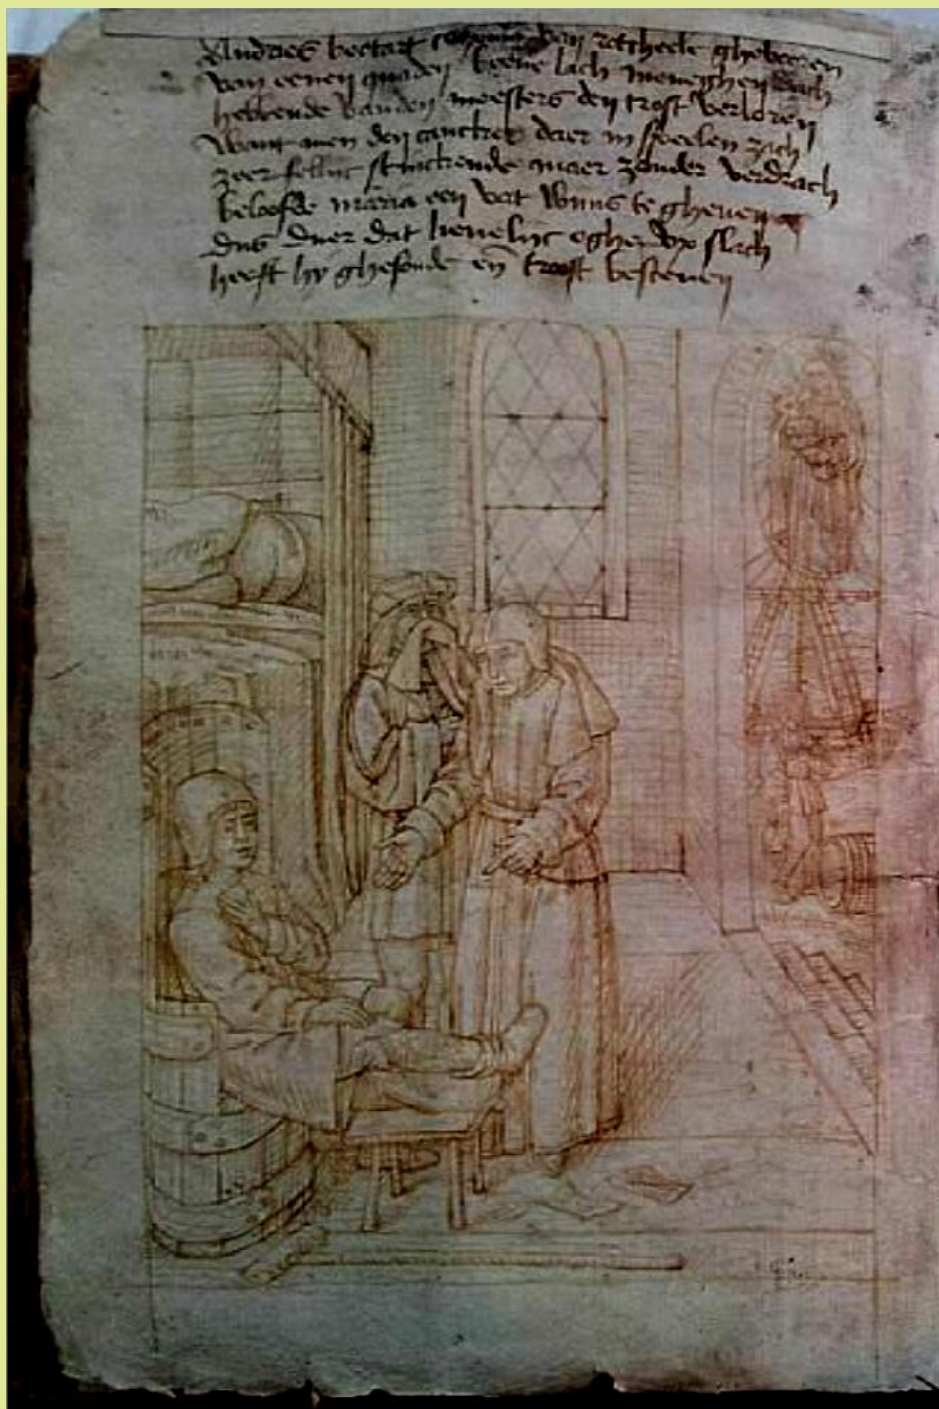 Andries bectart van retheele ghebooren
van eenen quaden beene lach meneghen dach
hebbende vanden meesters den trost verloren
want men den cancker daer in speelen zach
zeer fellijc stinckende maer zonder verdrach
beloofde maria een vat wijns te gheuen
dus duer dat lieuelijc oghen slach
heeft hy ghesonde en troost